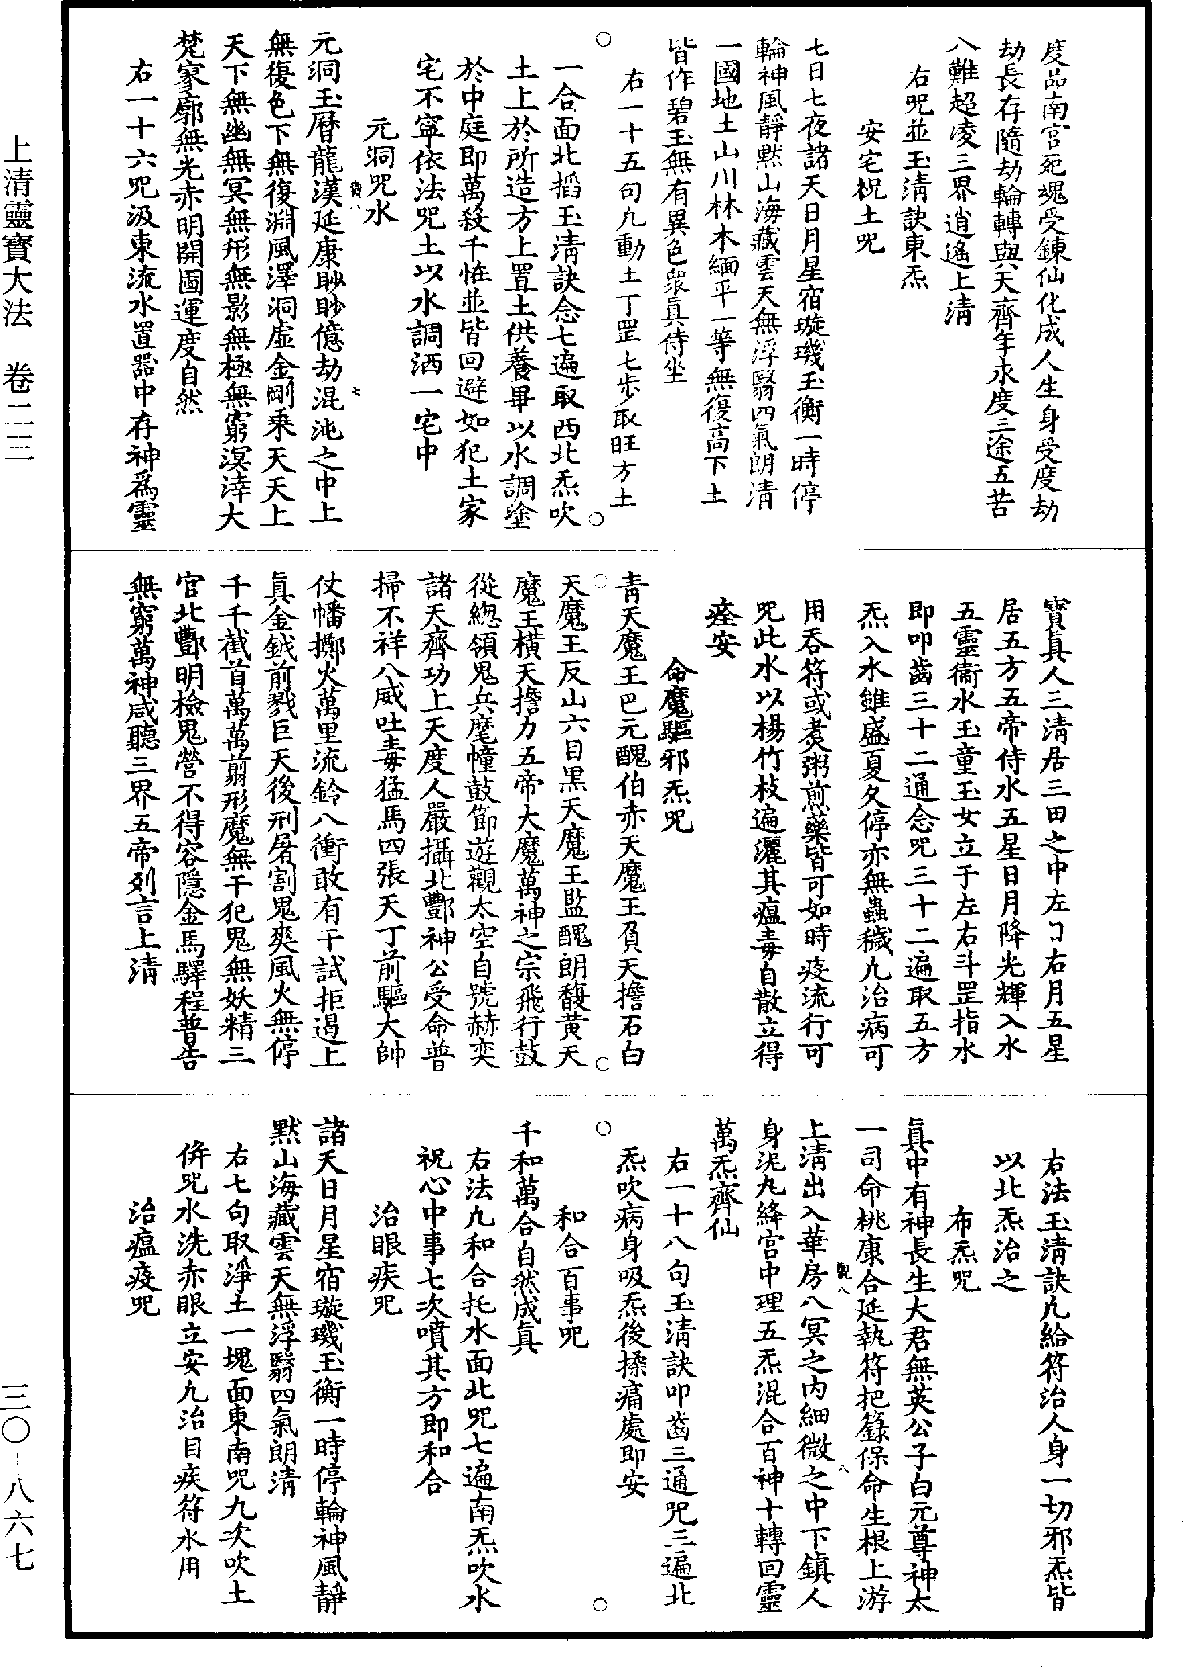 度品南宮死魂受鍊仙化成人生身受度劫
劫長存隨劫輪轉與天齊年永度三途五苦
八難超凌三界逍遙上清
右咒並玉清訣東炁
安宅祝土咒
七日七夜諸天日月星宿璇璣玉衡一時停
輪神風靜默山海藏雲天無浮翳四氣朗清
一國地土山川林木緬平一等無復高下土
皆作碧玉無有異色衆真侍坐
右一十五句凡動土丁罡七步取旺方土
一合面北搯玉清訣念七遍取西北炁吹
土上於所造方上置土供養畢以水調塗
於中庭即萬殺千怪並皆回避如犯土家
宅不寧依法咒土以水調洒一宅中
元洞咒水
元洞玉曆龍漢延康眇眇億劫混沌之中上
無復色下無復淵風澤洞虛金剛乘天天上
天下無幽無冥無形無影無極無窮溟涬大
梵寥廓無光赤明開圖運度自然
右一十六咒汲東流水置器中存神為靈
寶真人三清居三田之中左日右月五星
居五方五帝侍水五星日月降光輝入水
五靈衞水玉童玉女立于左右斗罡指水
即叩齒三十二通念咒三十二遍取五方
炁入水雖盛夏久停亦無蟲穢凡治病可
用吞符或煑粥煎藥皆可如時疫流行可
咒此水以楊竹枝遍灑其瘟毒自散立得
痊安
命魔驅邪炁咒
青天魔王巴元醜伯赤天魔王負天擔石白
天魔王反山六目黑天魔王監醜朗馥黃天
魔王橫天擔力五帝大魔萬神之宗飛行鼓
從總領鬼兵麾幢鼓節遊觀太空自號赫奕
諸天齊功上天度人嚴攝北酆神公受命普
掃不祥八威吐毒猛馬四張天丁前驅大帥
仗幡擲火萬里流鈴八衝敢有干試拒遏上
真金鉞前戮巨天後刑屠割鬼爽風火無停
千千截首萬萬剪形魔無干犯鬼無妖精三
官北酆明檢鬼營不得容隱金馬驛程普告
無窮萬神咸聽三界五帝列言上清
右法玉清訣凡給符治人身一切邪炁皆
以北炁治之
布炁咒
真中有神長生大君無英公子白元尊神太
一司命桃康合延執符把籙保命生根上游
上清出入華房八冥之內細微之中下鎮人
身泥丸絳宮中理五炁混合百神十轉回靈
萬炁齊仙
右一十八句玉清訣叩齒三通咒三遍北
炁吹病身吸炁後揉痛處即安
和合百事咒
千和萬合自然成真
右法凡和合托水面北咒七遍南炁吹水
祝心中事七次噴其方即和合
治眼疾咒
諸天日月星宿璇璣玉衡一時停輪神風靜
默山海藏雲天無浮翳四氣朗清
右七句取淨土一塊面東南咒九次吹土
併咒水洗赤眼立安凡治目疾符水用
治瘟疫咒
上清靈寶大法 卷二三
三〇–八六七